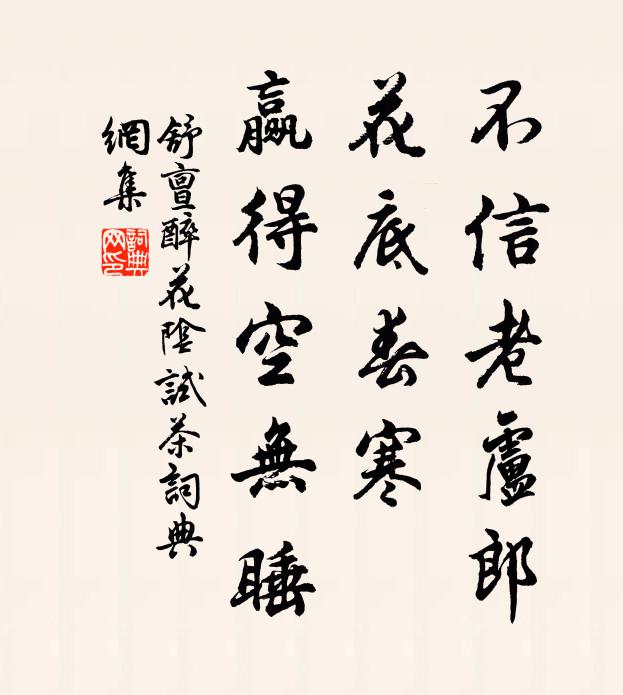 不信老盧郎
花底春寒
贏得空無睡
舒亶醉花陰試茶詞典
網集
詞典網印